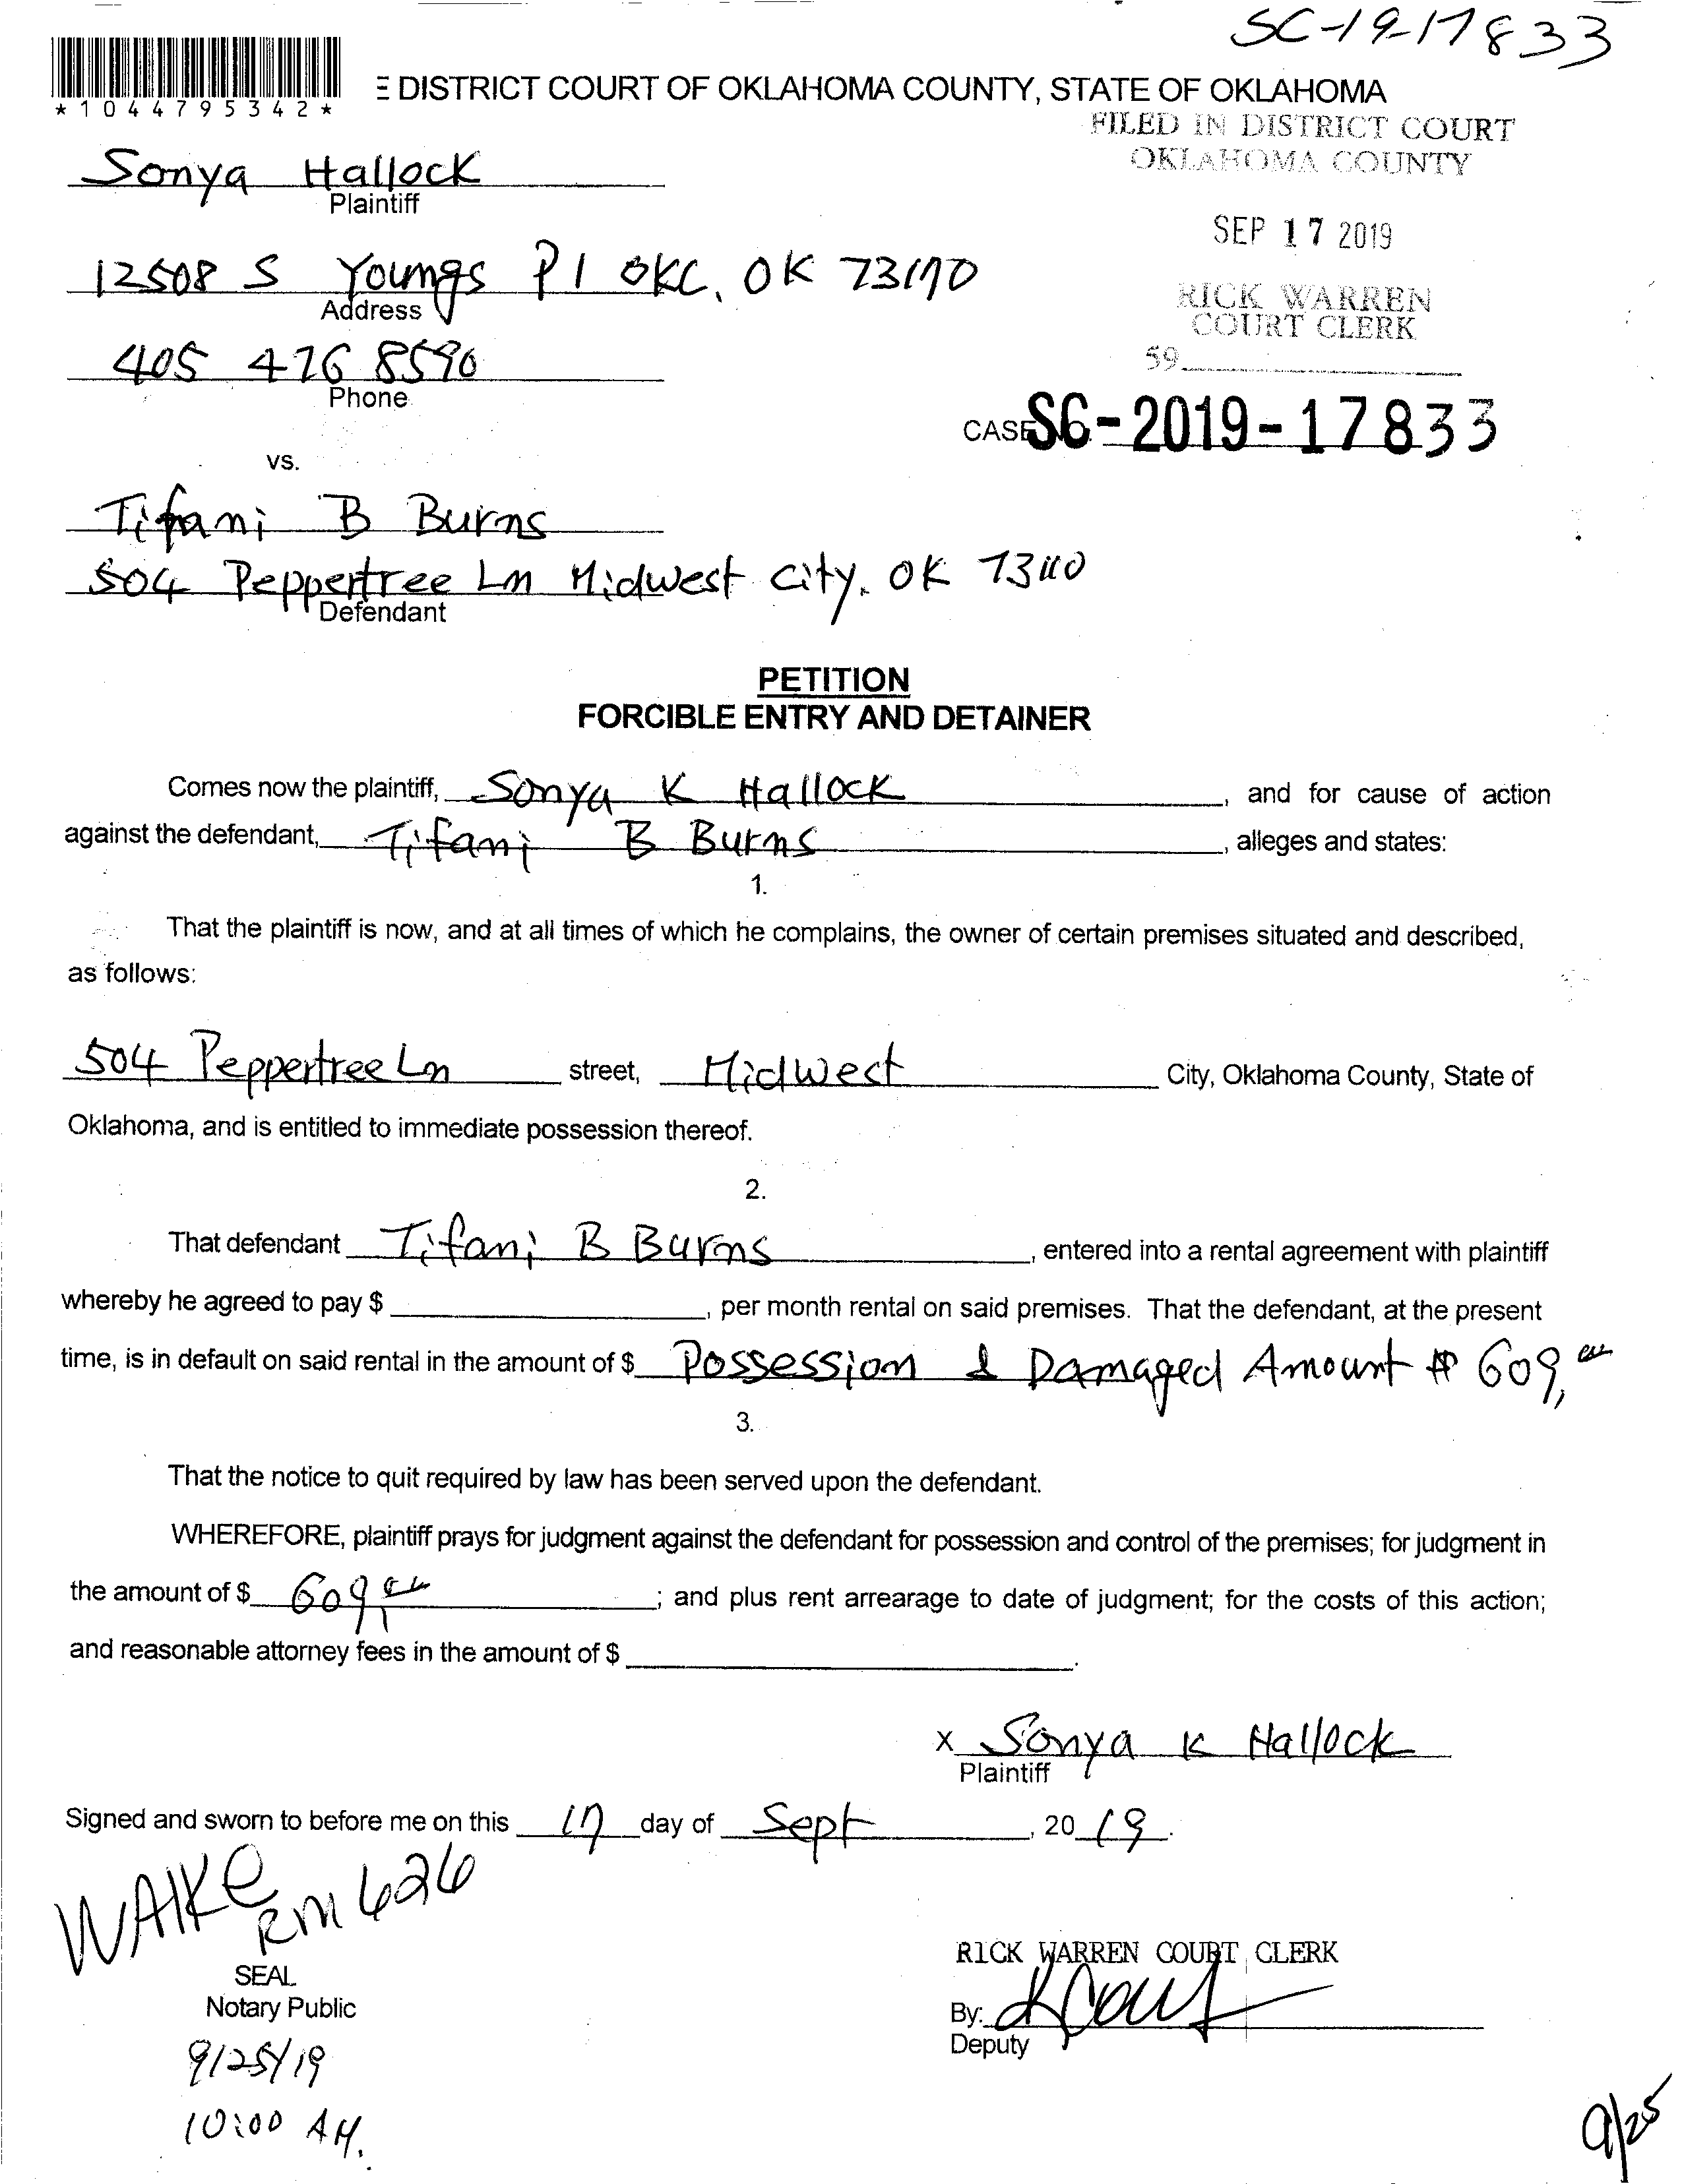 SC-19-17833
*1044795342*
E DISTRICT COURT OF OKLAHOMA COUNTY, STATE OF OKLAHOMA
FILED IN DISTRICT COURT
OKLAHOMA COUNTY
Sonya Hallock
Plaintiff
SEP 17 2019
12508 S Youngs Pl OKC, OK 73170
Address
RICK WARREN
COURT CLERK
405 476 8590
Phone
59
CASE SC-2019-17833
vs.
Tifani B Burns
504 Peppertree Ln Midwest City, OK 73110
Defendant
PETITION
FORCIBLE ENTRY AND DETAINER
Comes now the plaintiff, Sonya K Hallock, and for cause of action
against the defendant, Tifani B Burns, alleges and states:
1.
That the plaintiff is now, and at all times of which he complains, the owner of certain premises situated and described,
as follows:
504 Peppertree Ln street, Midwest City, Oklahoma County, State of
Oklahoma, and is entitled to immediate possession thereof.
2.
That defendant Tifani B Burns, entered into a rental agreement with plaintiff
whereby he agreed to pay $, per month rental on said premises. That the defendant, at the present
time, is in default on said rental in the amount of $ Possession & Damaged Amount $ 609,
3.
That the notice to quit required by law has been served upon the defendant.
WHEREFORE, plaintiff prays for judgment against the defendant for possession and control of the premises; for judgment in
the amount of $ 609, ; and plus rent arrearage to date of judgment; for the costs of this action;
and reasonable attorney fees in the amount of $ .
x Sonya K Hallock
Plaintiff
Signed and sworn to before me on this 17 day of Sept, 2019.
WAlKe
RM 626
RICK WARREN COURT CLERK
SEAL
Notary Public
By:
Deputy
9/25/19
10:00 AM.
9/25